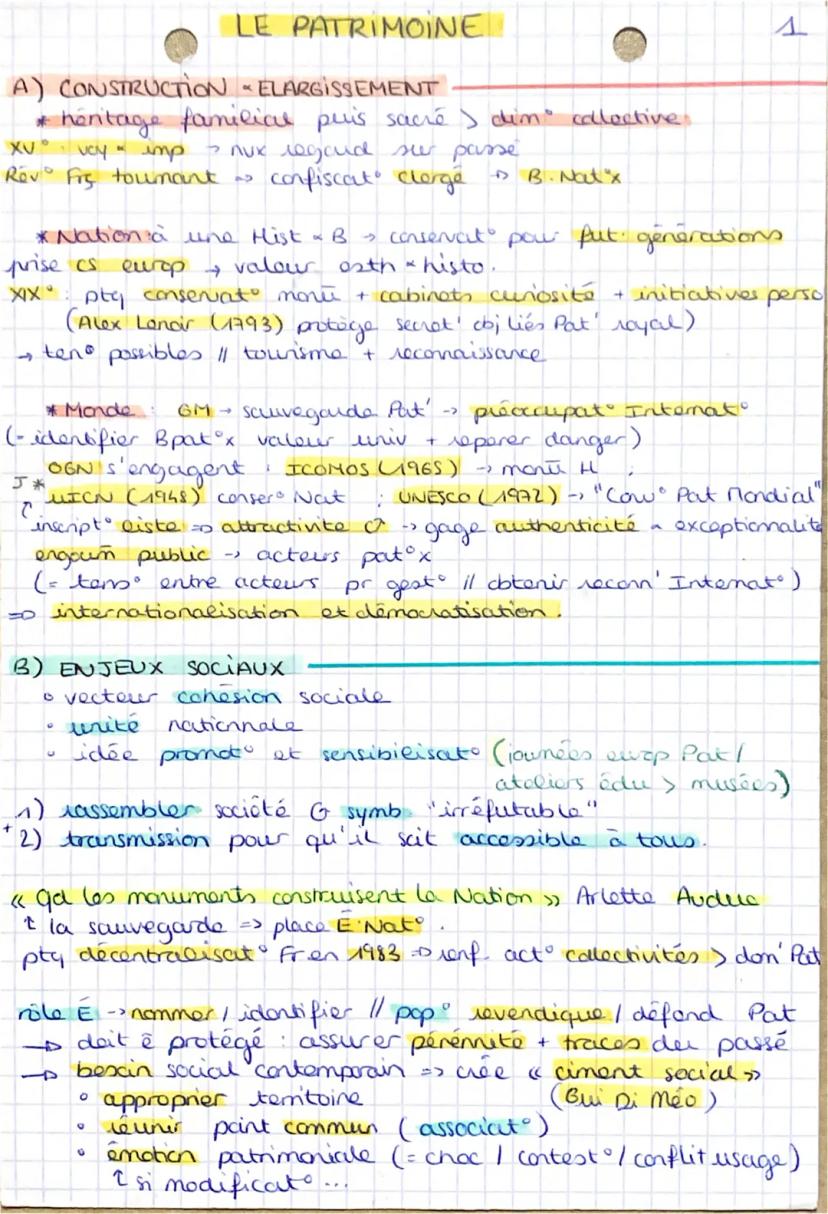 LE PATRIMOINE 1
A) CONSTRUCTION & ELARGISSEMENT
* héritage familial puis sacré > dim° collective
XV° : voy & imp → nvx regard sur passé
Rév° Frç tournant => confiscat° clergé → B. Nat°x
* Nation : à une Hist & B → conservat° pour fut. générations
prise cs europ → valeur esth & histo.
XIX° : ptq conservat° monu + cabinets curiosité + initiatives perso
(Alex Lenoir (1793) protège secret' obj liés Pat' royal)
→ ten° possibles // tourisme + reconnaissance
* Monde : GM → sauvegarde Pat' → préoccupat° Internat°
(= identifier Bpat°x valeur univ + reperer danger)
OGN s'engagent : ICOMOS (1965) → monu H ;
J* UICN (1948) conser° Nat ; UNESCO (1972) → "Conv° Pat Mondial"
↑ inscript° liste => attractivité ↗ → gage authenticité & exceptionnalité
engoum public → acteurs pat°x
(= tens° entre acteurs pr gest° // obtenir reconn' Internat°)
=> internationalisation et démocratisation.
B) ENJEUX SOCIAUX
° vecteur cohésion sociale
° unité nationnale
° idée promot° et sensibilisat° (journées europ Pat /
ateliers édu > musées)
1) rassembler société G symb "irréfutable"
+ 2) transmission pour qu'il soit accessible à tous.
« Qd les monuments construisent la Nation » Arlette Auduc
↑ la sauvegarde => place É. Nat°.
ptq décentralisat° Fr en 1983 => renf. act° collectivités > dom' Pat
rôle É → nommer / identifier // pop° revendique / défend Pat
→ doit ê protégé : assurer pérénnité + traces du passé
→ besoin social contemporain => crée « ciment social »
° approprier territoire (Gui Di Méo)
° réunir point commun (associat°)
° émotion patrimoniale (= choc / contest° / conflit usage)
↑ si modificat° ...